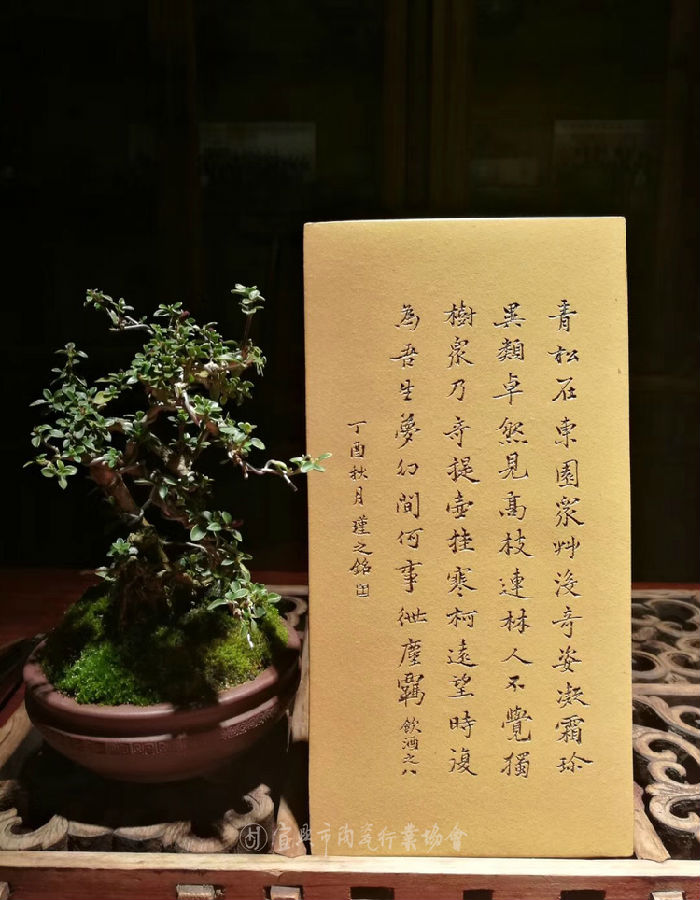 青松在東園衆艸沒奇姿凝霜殄
異類卓然見高枝連林人不覺獨
樹衆乃奇提壺挂寒柯遠望時復
為吾生夢幻間何事紲塵羈 飲酒之八
丁酉秋月瑾之銘
宜興市陶瓷行業協會